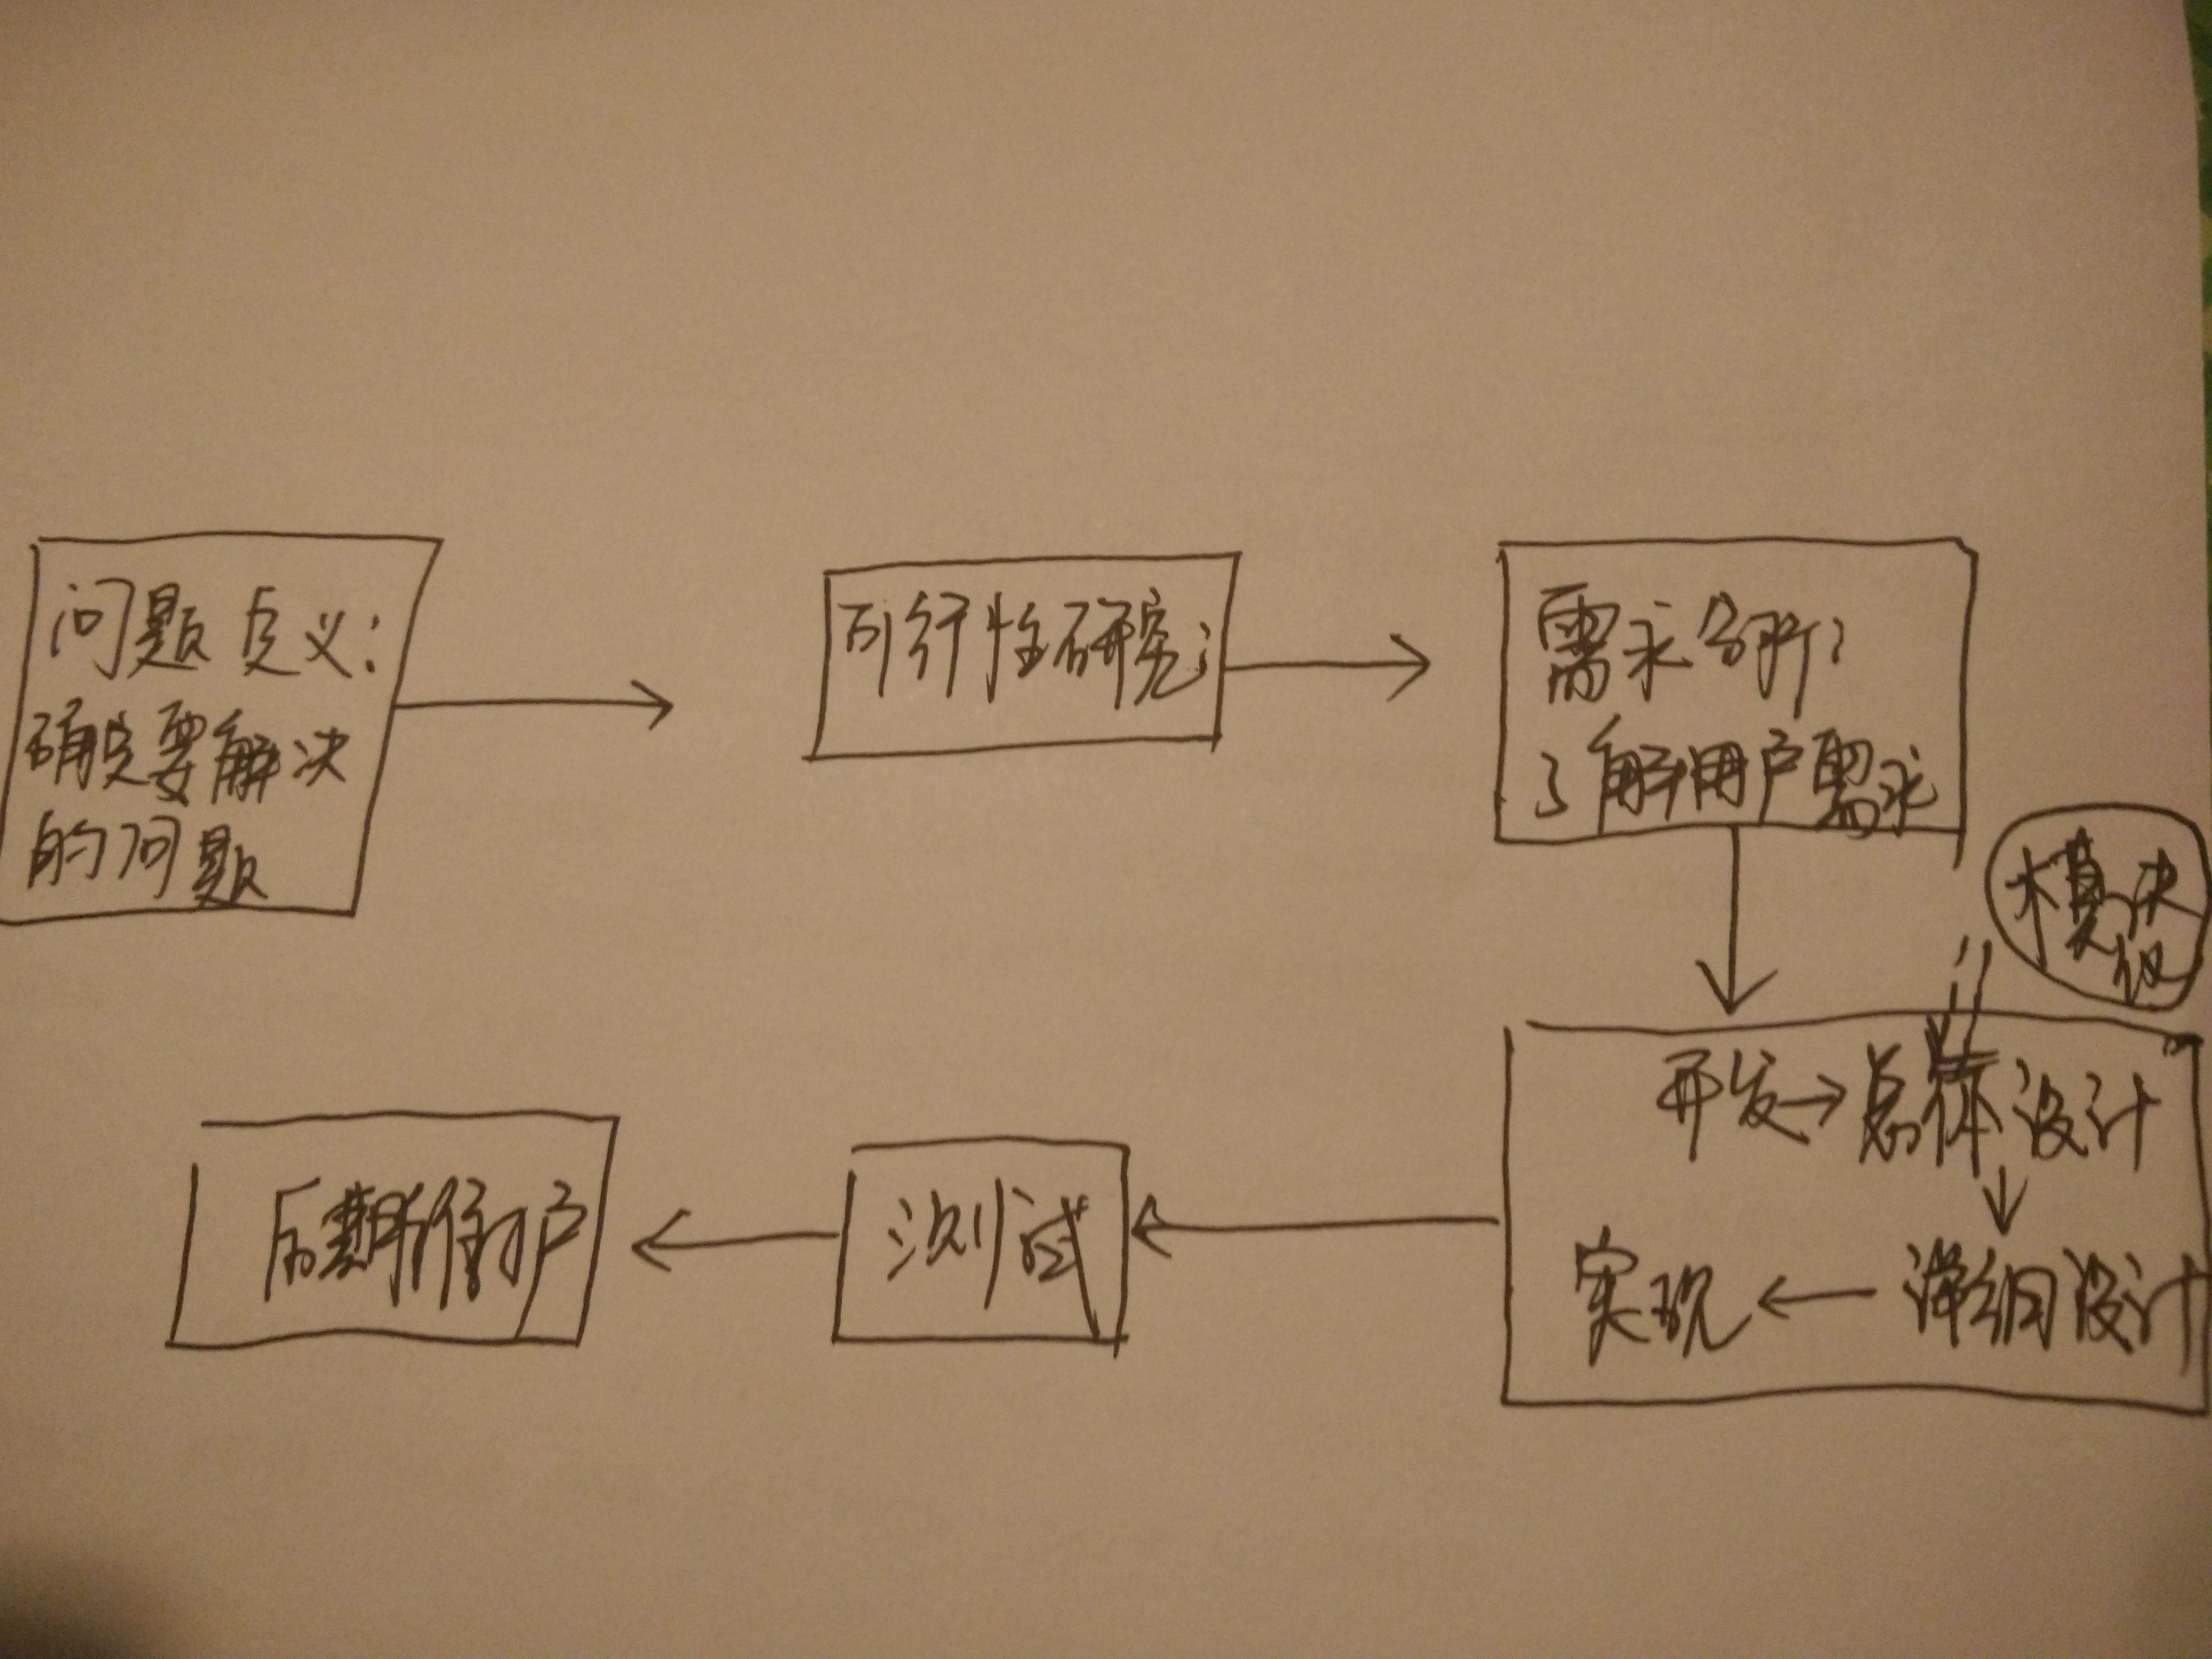 问题定义：
确定要解决
的问题
可行性研究：
需求分析：
了解用户需求
模块
开发→总体设计
实现←详细设计
测试
后期维护